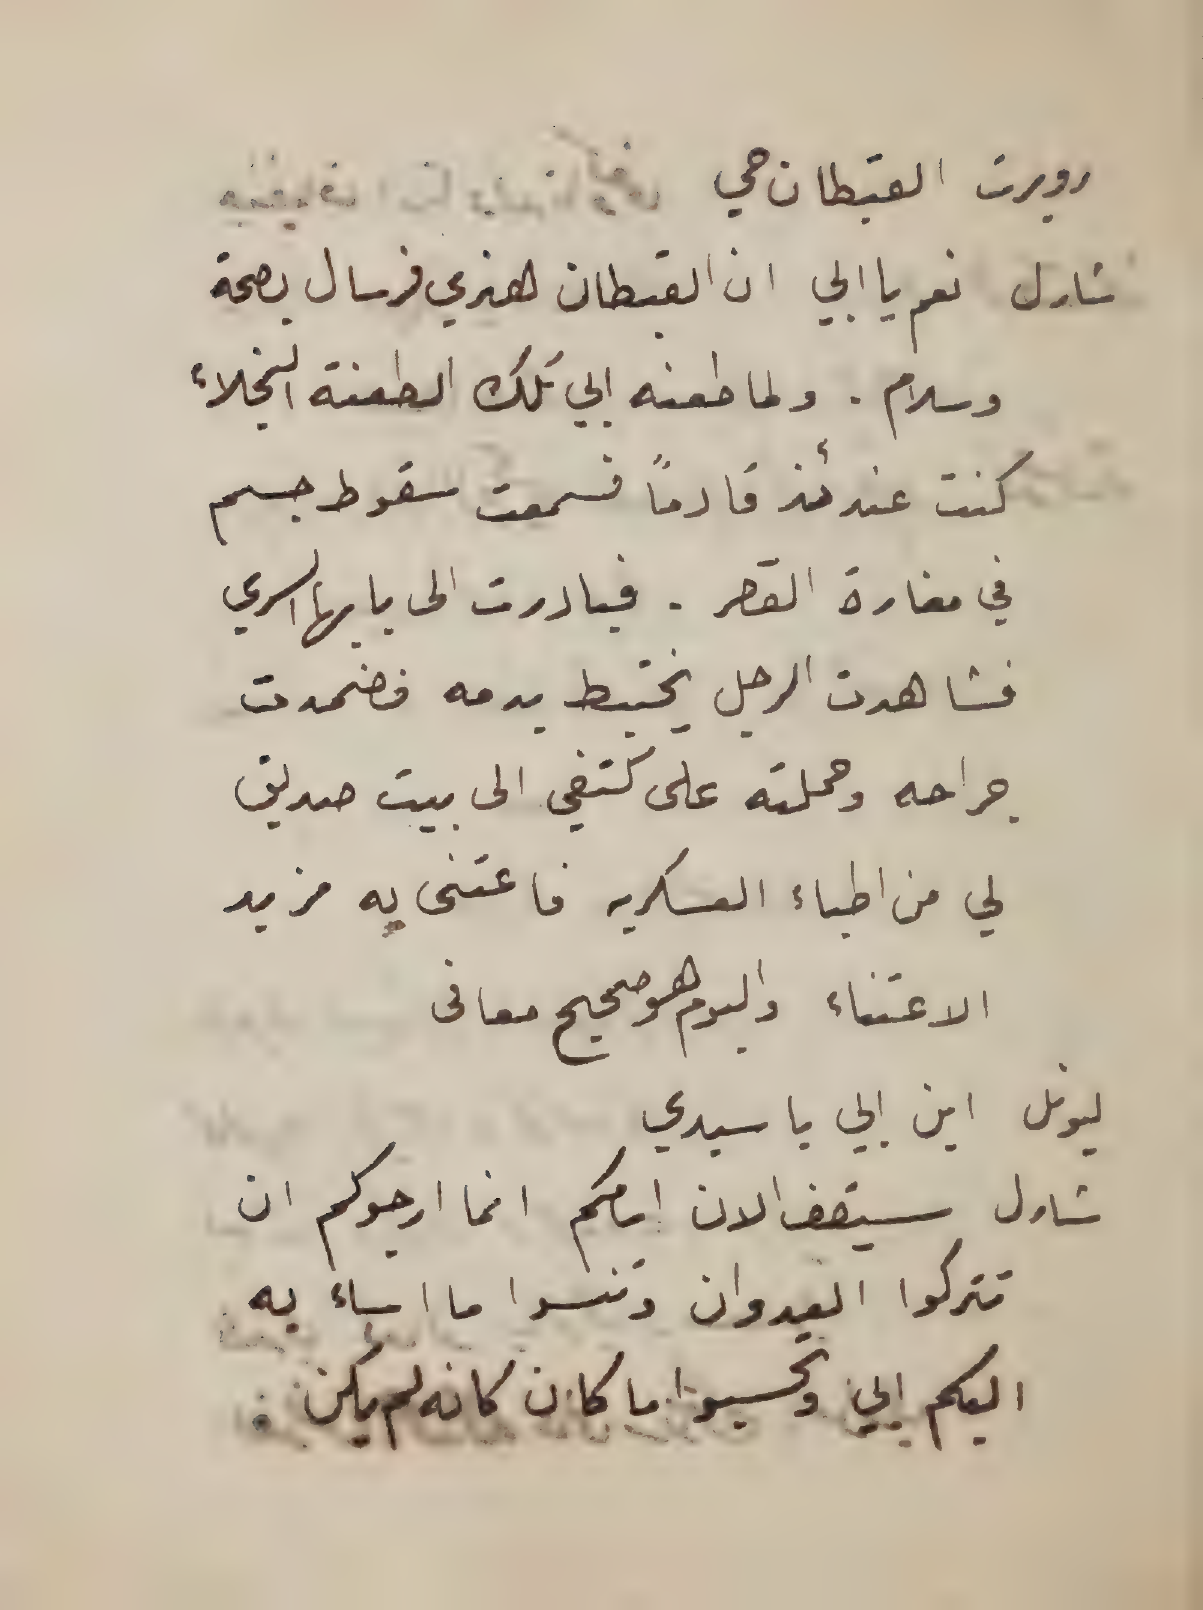 روبرت القبطان حي
شارل نعم يا ابي ان القبطان هنري فرسال بصحة
وسلام . ولما طعنه ابي تلك الطعنة النجلاء
كنت عندئذ قادماً فسمعت سقوط جسم
في مغارة القصر . فبادرت الى بابها السري
فشاهدت الرجل يختبط بدمه فضمدت
جراحه وحملته على كتفي الى بيت صديق
لي من اطباء العسكريه فاعتنى به مزيد
الاعتناء واليوم هو صحيح معافى
ليونل اين ابي يا سيدي
شارل سيقف الان امامكم انما ارجوكم ان
تتركوا العدوان وتنسوا ما اساء به
اليكم ابي وتحسبوا ما كان كانه لم يكن